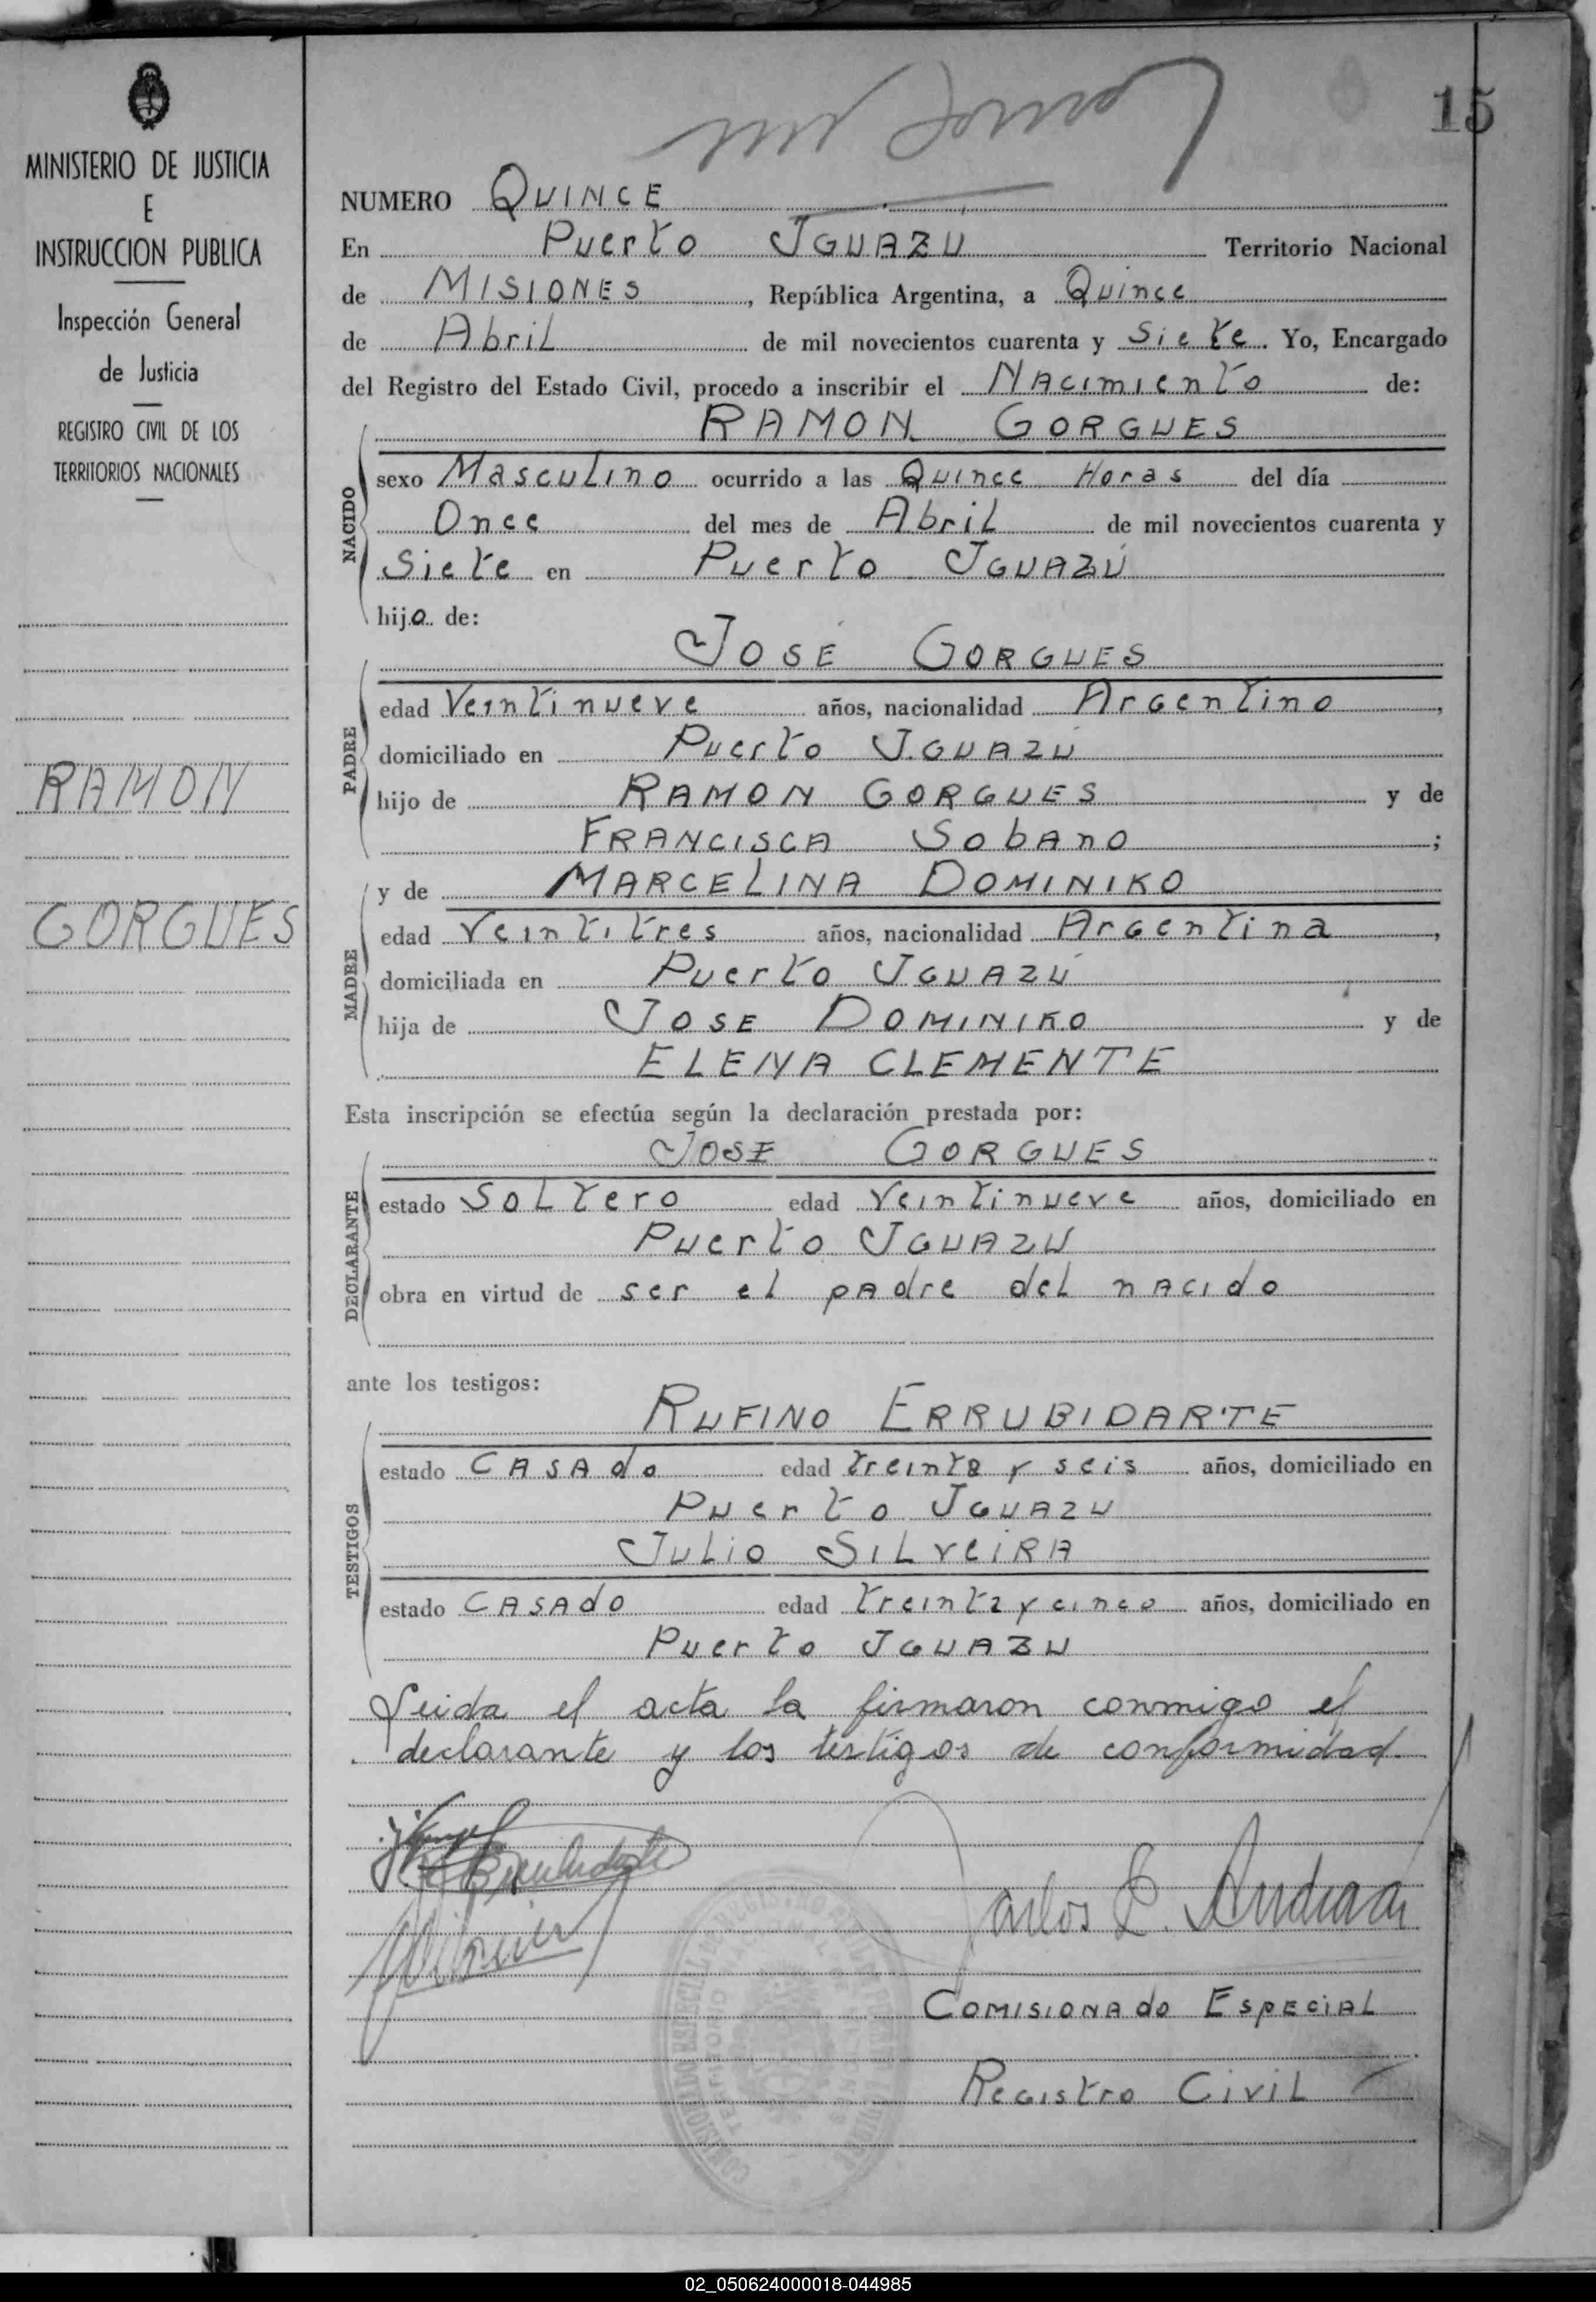 MINISTERIO DE JUSTICIA
E
INSTRUCCION PUBLICA
Inspección General
de Justicia
REGISTRO CIVIL DE LOS
TERRITORIOS NACIONALES
RAMON
GORGUES
15
NUMERO QUINCE
En Puerto IGUAZU Territorio Nacional
de MISIONES, República Argentina, a Quince
de Abril de mil novecientos cuarenta y Siete. Yo, Encargado
del Registro del Estado Civil, procedo a inscribir el Nacimiento de:
RAMON GORGUES
NACIDO
sexo Masculino ocurrido a las Quince Horas del día
Once del mes de Abril de mil novecientos cuarenta y
Siete en Puerto IGUAZÚ
hijo de:
JOSÉ GORGUES
PADRE
edad Veintinueve años, nacionalidad Argentino,
domiciliado en Puerto IGUAZÚ
hijo de RAMON GORGUES y de
FRANCISCA Sobano;
y de MARCELINA DOMINIKO
MADRE
edad Veintitres años, nacionalidad Argentina,
domiciliada en Puerto IGUAZÚ
hija de JOSE DOMINIKO y de
ELENA CLEMENTE
Esta inscripción se efectúa según la declaración prestada por:
JOSE GORGUES
DECLARANTE
estado Soltero edad Veintinueve años, domiciliado en
Puerto IGUAZU
obra en virtud de ser el padre del nacido
ante los testigos:
RUFINO ERRUBIDARTE
TESTIGOS
estado CASADO edad treinta y seis años, domiciliado en
Puerto IGUAZU
JULIO SILVEIRA
estado CASADO edad treinta y cinco años, domiciliado en
Puerto IGUAZU
Leida el acta la firmaron conmigo el
declarante y los testigos de conformidad.
Carlos
COMISIONADO ESPECIAL
Registro Civil
02_050624000018-044985